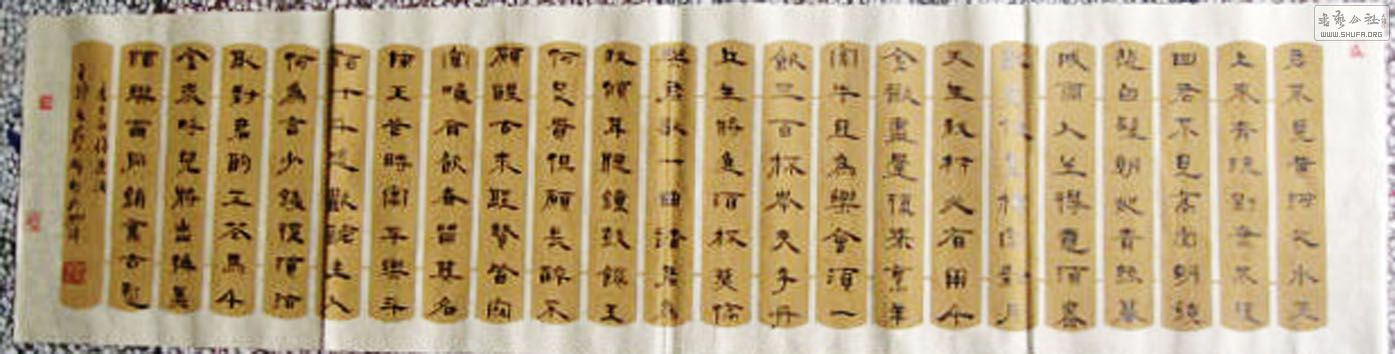 君不見黃河之水天
上來奔流到海不復
回君不見高堂明鏡
悲白髮朝如青絲暮
成雪人生得意須盡
歡莫使金樽空對月
天生我材必有用千
金散盡還復來烹羊
宰牛且為樂會須一
飲三百杯岑夫子丹
丘生將進酒杯莫停
與君歌一曲請君為
我傾耳聽鐘鼓饌玉
何足貴但願長醉不
願醒古來聖賢皆寂
寞唯有飲者留其名
陳王昔時宴平樂斗
酒十千恣歡謔主人
何為言少錢徑須沽
取對君酌五花馬千
金裘呼兒將出換美
酒與爾同銷萬古愁
書藝公社
WWW.SHUFA.ORG